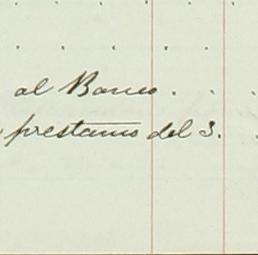 al Banco . . .
prestamo del 3.